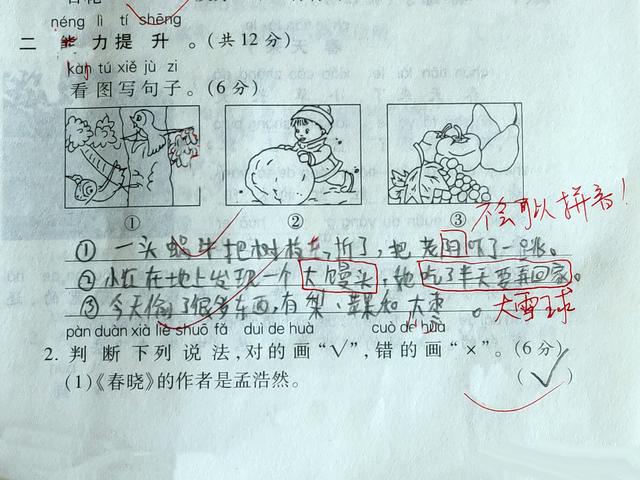 néng lì tí shēng
二 能 力 提 升 。(共 12 分)
kàn tú xiě jù zi
看 图 写 句 子 。(6 分)
① ② ③
不会可以拼音!
① 一头蜗牛把树枝压折了,把老阴吓了一跳。
② 小红在地上发现一个大馒头,她吃了半天要弄回家。
大雪球
③ 今天偷了很多东西,有梨、苹果和大枣。
pàn duàn xià liè shuō fǎ duì de huà cuò de huà
2. 判 断 下 列 说 法,对 的 画“√”,错 的 画“×”。(6 分)
(1)《春晓》的作者是孟浩然。 (√)